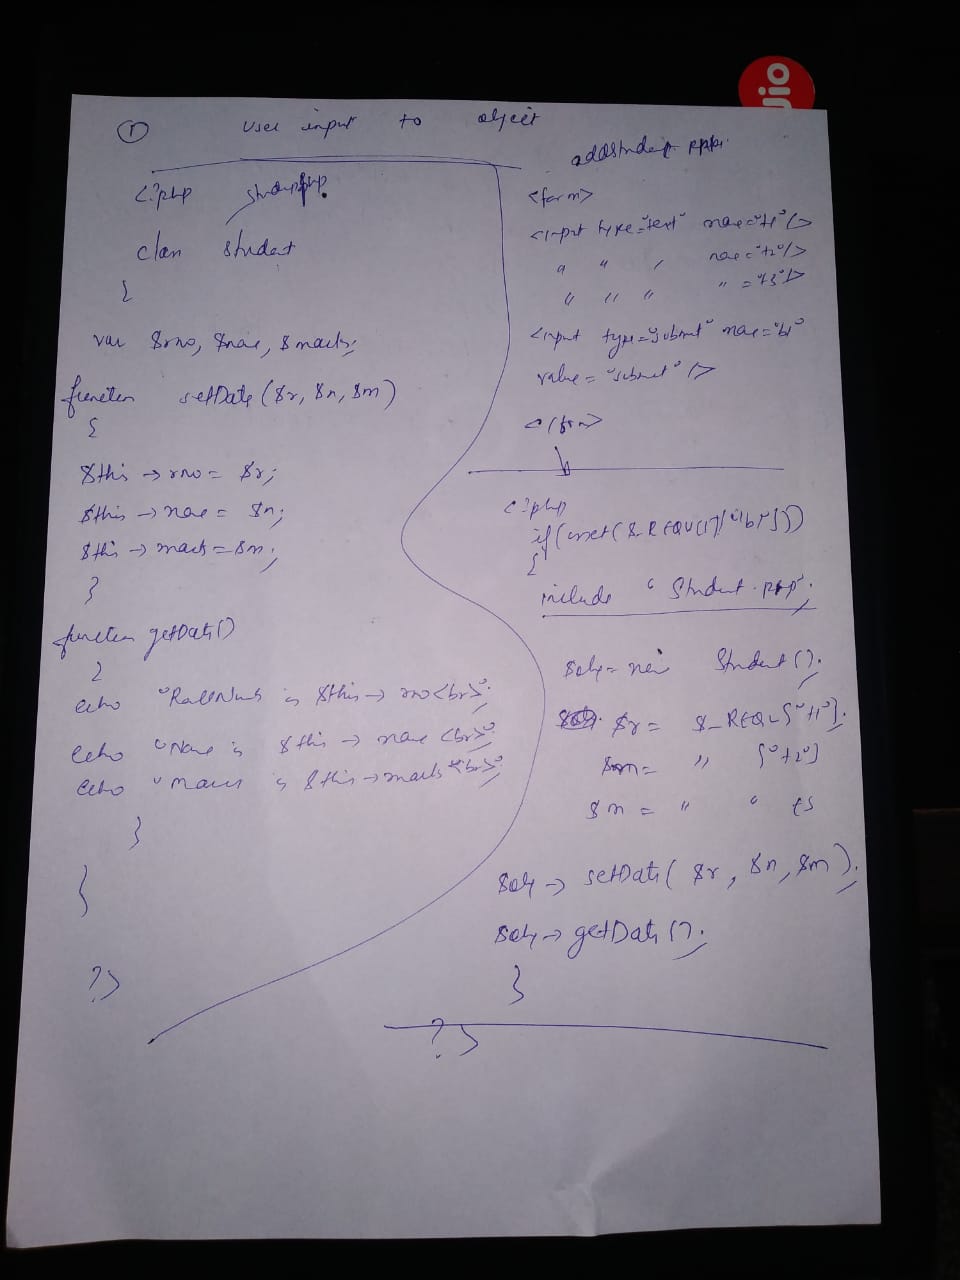 ① User input to object
<?php student.php
class student
{
var $rno, $name, $marks;
function setData ($r, $n, $m)
{
$this → rno = $r;
$this → name = $n;
$this → marks = $m;
}
function getData()
{
echo "RollNumb is $this → rno<br>";
echo "Name is $this → name <br>";
echo "Marks is $this → marks <br>";
}
}
?>
addstudent.php
<form>
<input type="text" name="t1" />
" " " name="t2" />
" " " " ="t3" />
<input type="submit" name="b1"
value = "submit" />
</form>
<?php
if(isset($_REQUEST["b1"]))
{
include "Student.php";
$obj = new Student();
$r = $_REQU["t1"];
= " ["t2"]
$m = " " t3
$obj → setData( $r, $n, $m );
$obj → getData();
}
?>
Jio